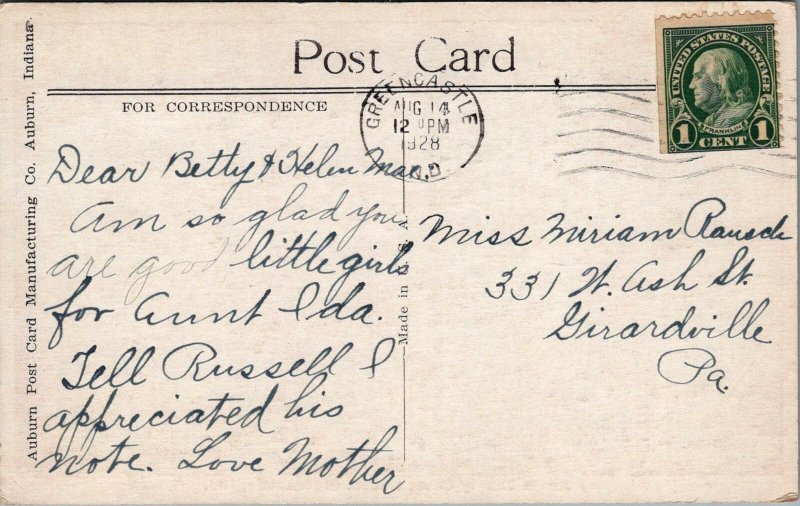 Post Card
FOR CORRESPONDENCE
GREENCASTLE
AUG 14
12 PM
1928
IND.
UNITED STATES POSTAGE
FRANKLIN
1 CENT 1
Dear Betty & Helen Mae,
Am so glad you
are good little girls
for Aunt Ida.
Tell Russell I
appreciated his
note. Love Mother
Made in U.S.A.
Miss Miriam Rausch
331 W. Ash St.
Girardville
Pa.
Auburn Post Card Manufacturing Co. Auburn, Indiana